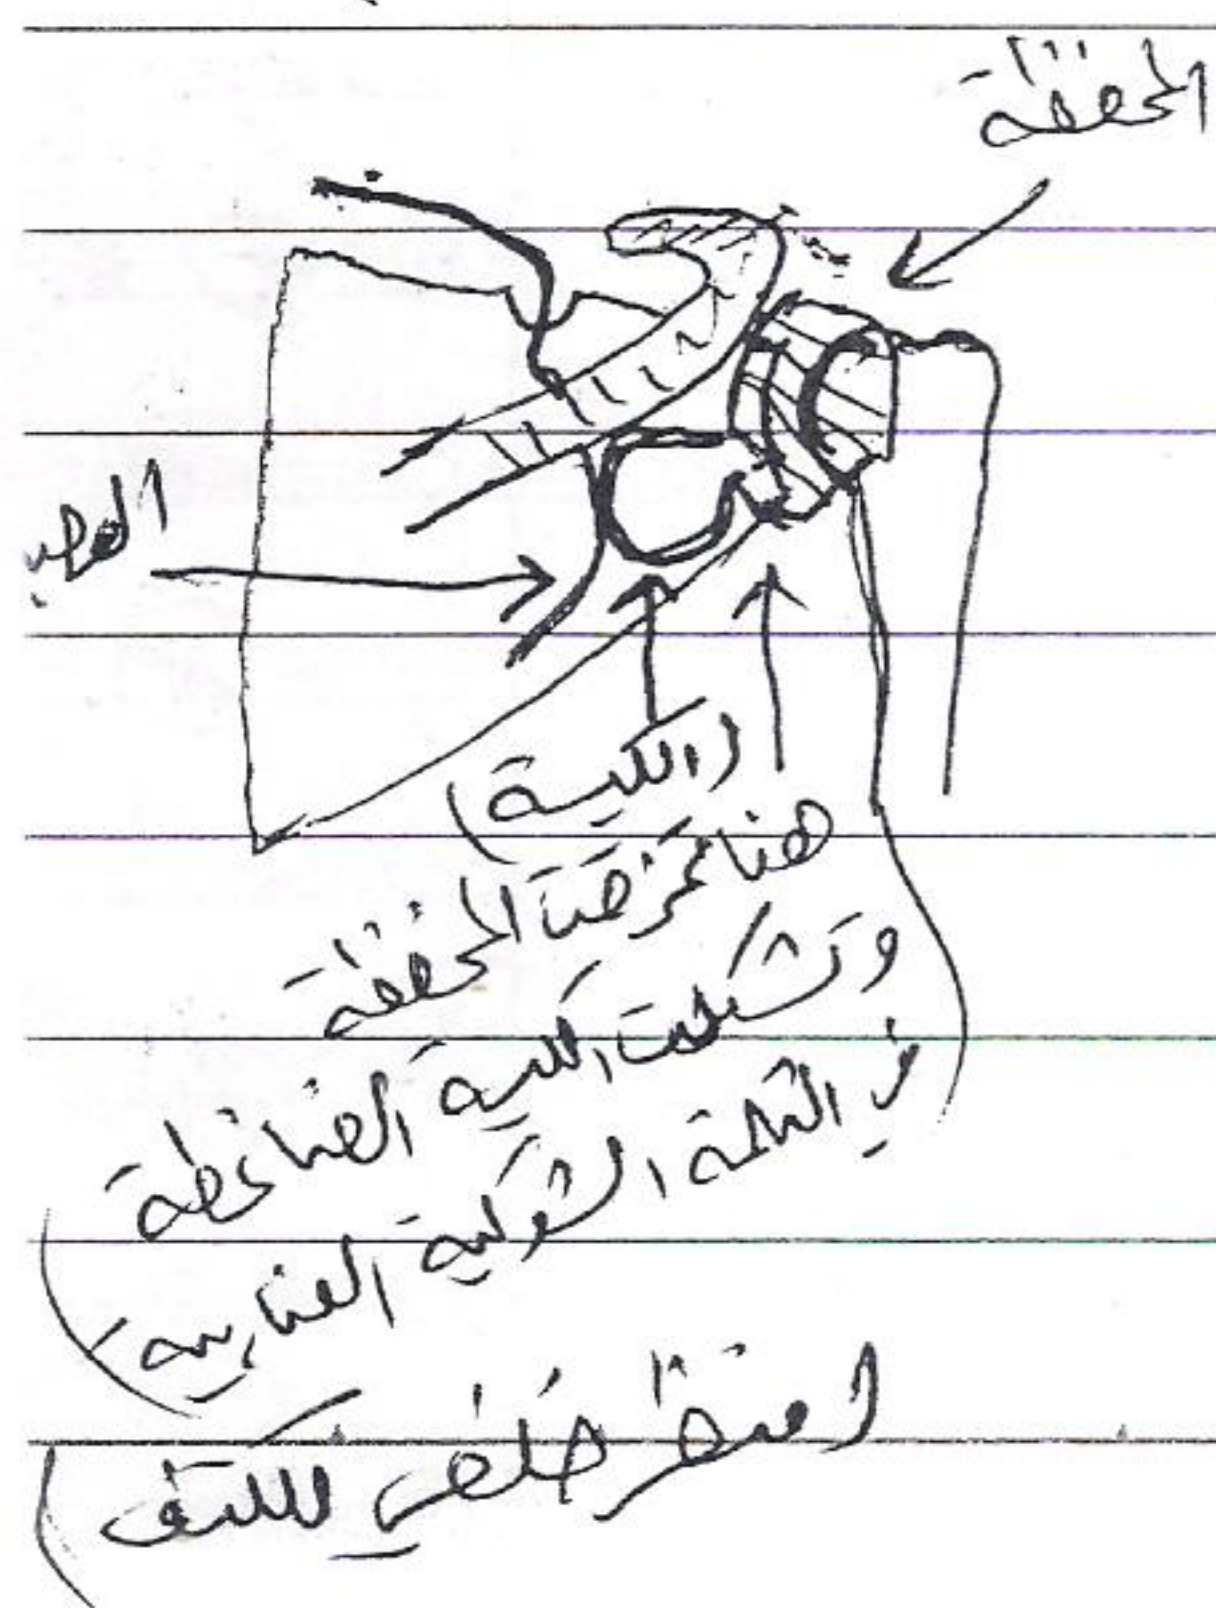 المحفظة
العصب
(الكيسة)
هنا تمزقت المحفظة
وتشكلت الكيسة الضاغطة
في الثلمة الشوكية العنابية)
(منظر خلفي للكتف)